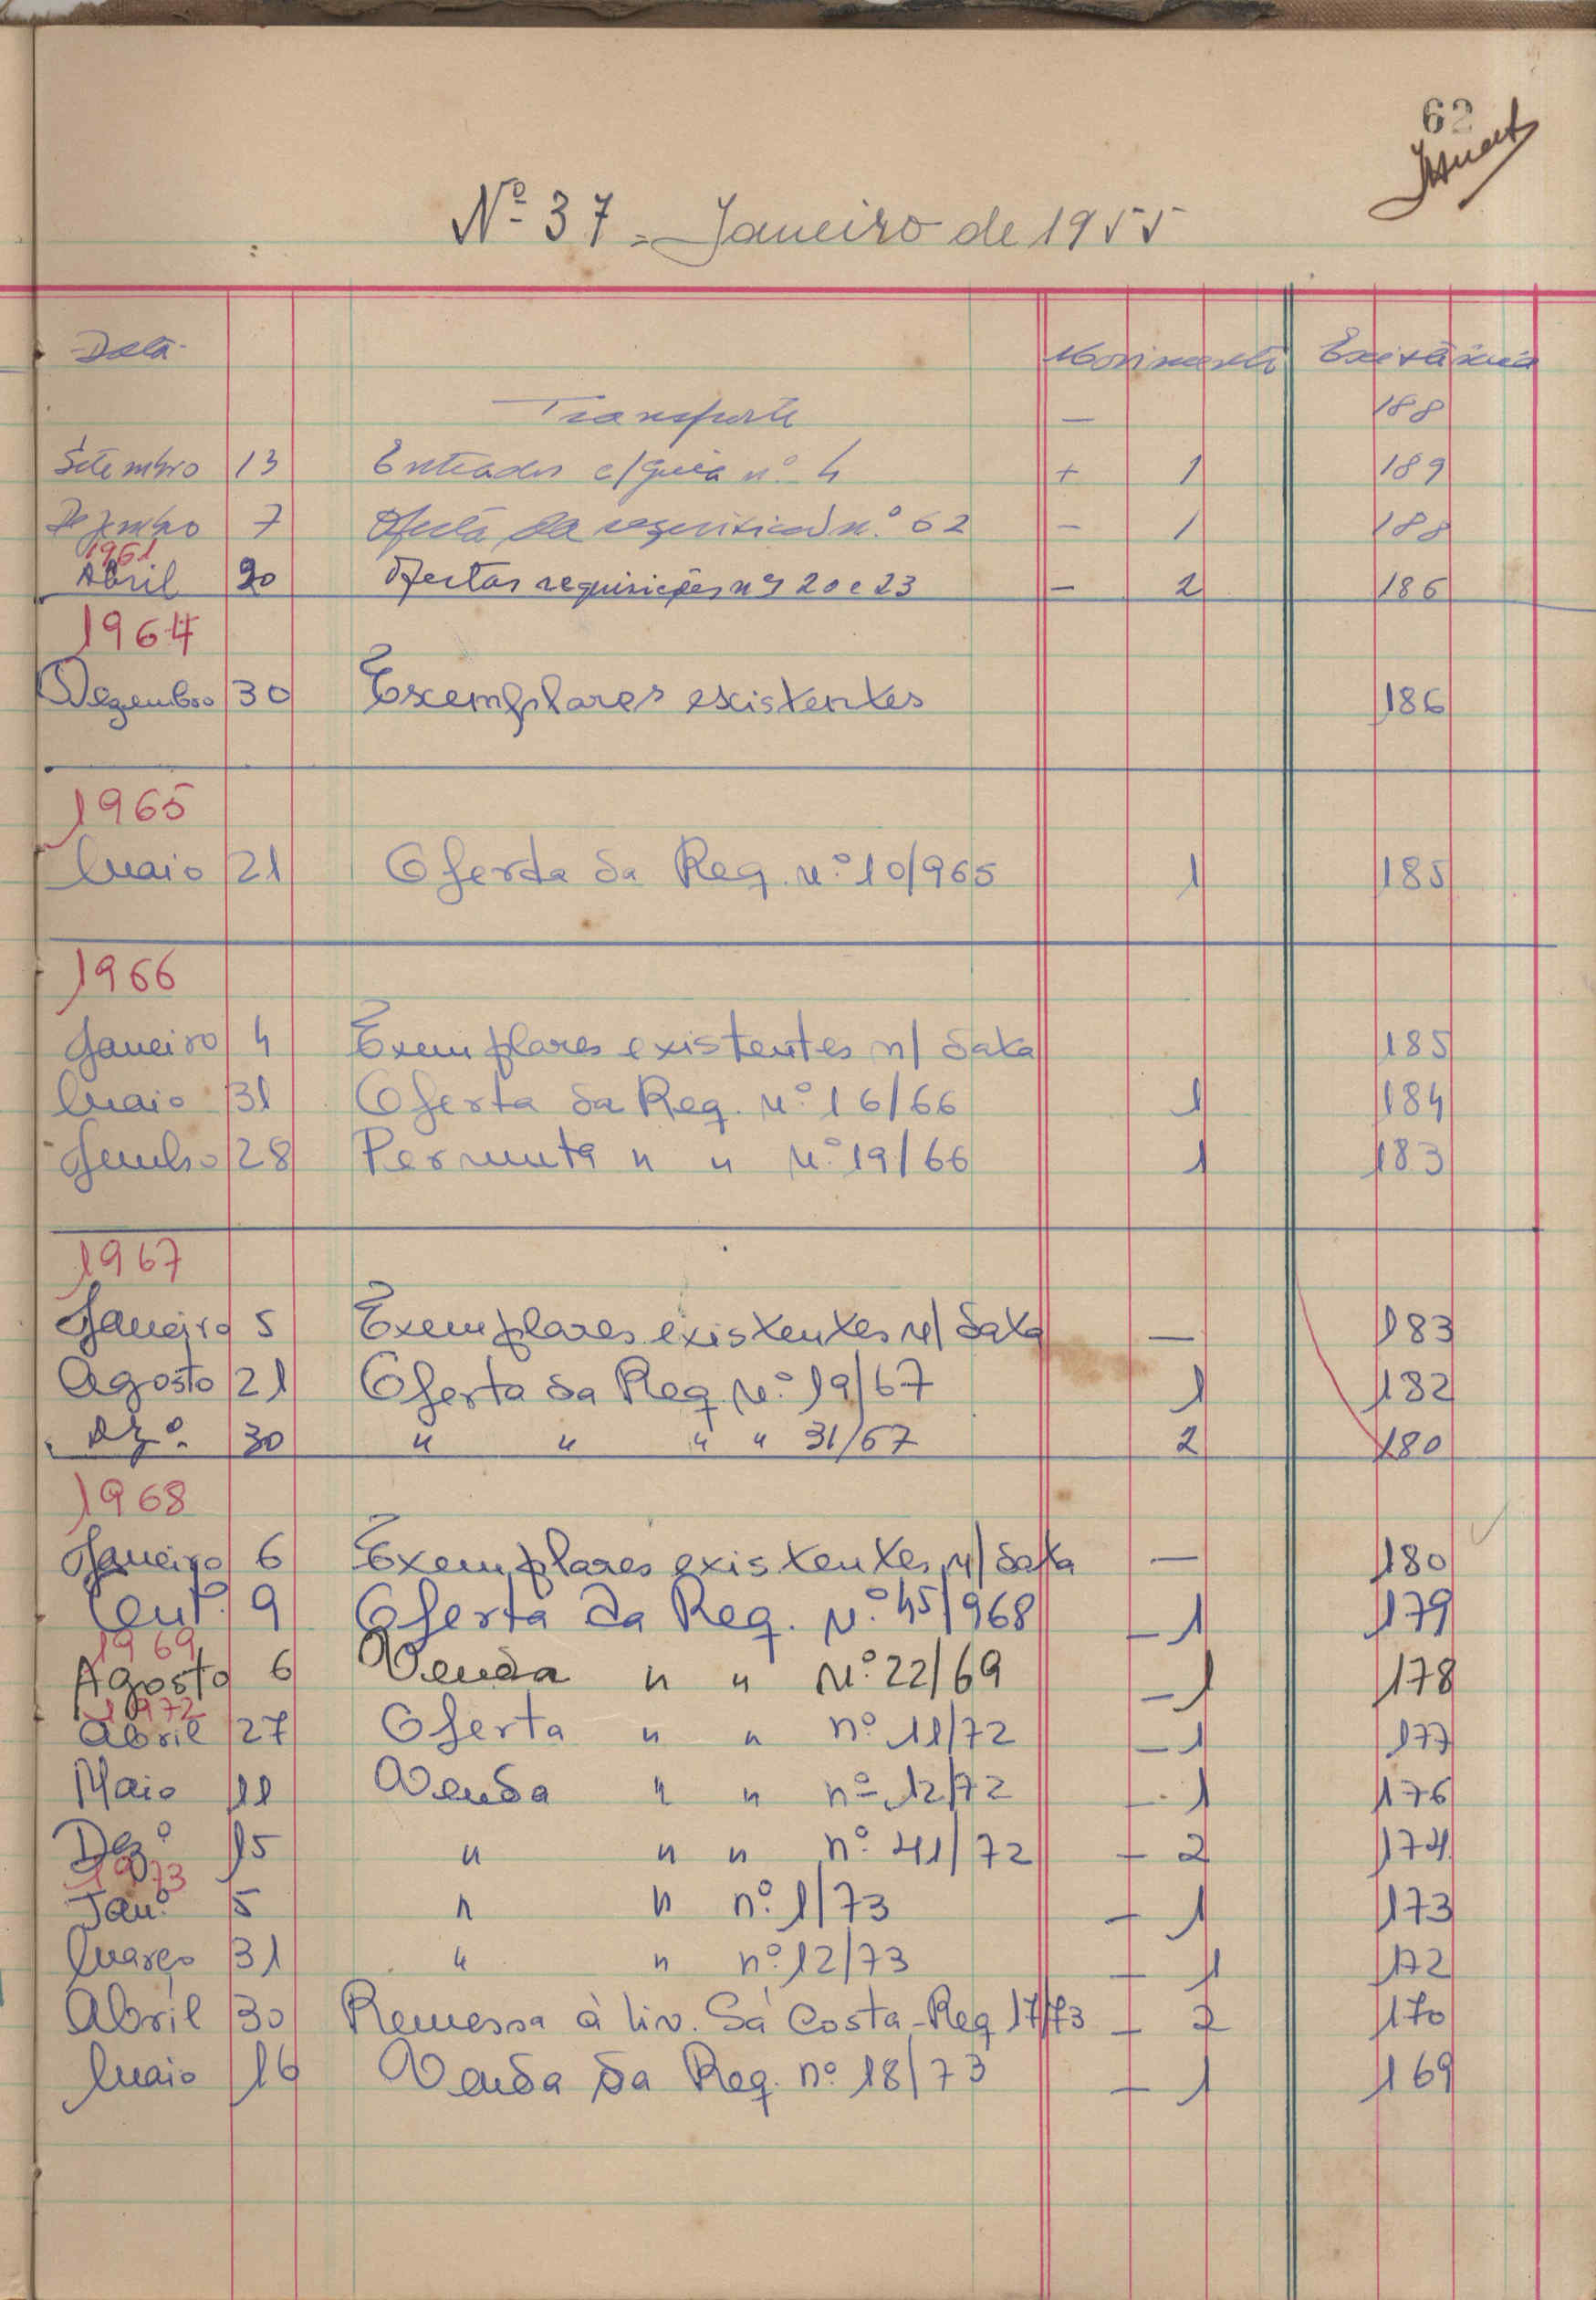 62
Nº 37 = Janeiro de 1955
Data Movimento Existência
Transporte — 188
Setembro 13 Entrados c/ guia nº 4 + 1 189
Dezembro 7 Oferta da requisição nº 62 - 1 188
1961
Abril 20 Ofertas requisições nºs 20 e 23 - 2 186
1964
Dezembro 30 Exemplares existentes 186
1965
Maio 21 Oferta da Req. nº 10/965 1 185
1966
Janeiro 4 Exemplares existentes n/ data 185
Maio 31 Oferta da Req. nº 16/66 1 184
Junho 28 Permuta " " Nº 19/66 1 183
1967
Janeiro 5 Exemplares existentes n/ data — 183
Agosto 21 Oferta da Req. Nº 19/67 1 182
Dzº. 30 " " " " 31/67 2 180
1968
Janeiro 6 Exemplares existentes n/ data — 180
Outº. 9 Oferta da Req. Nº 45/968 - 1 179
1969
Agosto 6 Venda " " Nº 22/69 - 1 178
1972
Abril 27 Oferta " " nº 11/72 - 1 177
Maio 11 Venda " " nº 12/72 - 1 176
Dezº 15 " " " nº 41/72 - 2 174
1973
Janº. 5 " " nº 1/73 - 1 173
Março 31 " " nº 12/73 - 1 172
Abril 30 Remessa à Liv. Sá Costa - Req 17/73 - 2 170
Maio 16 Venda da Req. nº 18/73 - 1 169